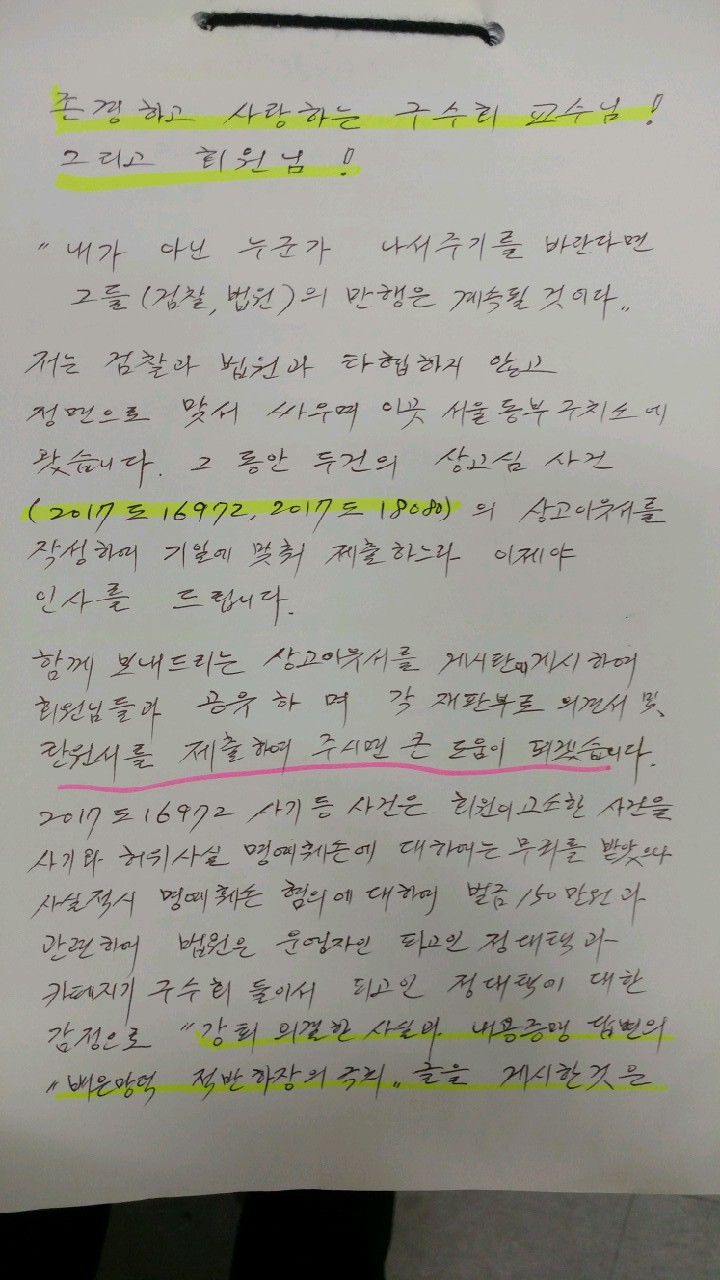 존경하고 사랑하는 구수회 교수님!
그리고 회원님!
"내가 아닌 누군가 나서주기를 바란다면
그들(검찰, 법원)의 만행은 계속될 것이다"
저는 검찰과 법원과 타협하지 않고
정면으로 맞서 싸우며 이곳 서울동부구치소에
왔습니다. 그 동안 두건의 상고심 사건
(2017도16972, 2017도18080)의 상고이유서를
작성하여 기일에 맞춰 제출하느라 이제야
인사를 드립니다.
함께 보내드리는 상고이유서를 게시판에게시하여
회원님들과 공유하며 각 재판부로 의견서 및
탄원서를 제출하여 주시면 큰 도움이 되겠습니다.
2017도16972 사기등 사건은 회원이고소한 사건을
사기와 허위사실 명예훼손에 대하여는 무죄를 받았으나
사실적시 명예훼손 혐의에 대하여 벌금 150만원과
관련하여 법원은 운영자인 피고인 정대택과
카페지기 구수회 둘이서 피고인 정대택이 대한
감정으로 "강퇴 의결한 사실과 내용증명 답변의
"배은망덕 적반하장의 극치" 글을 게시한것은